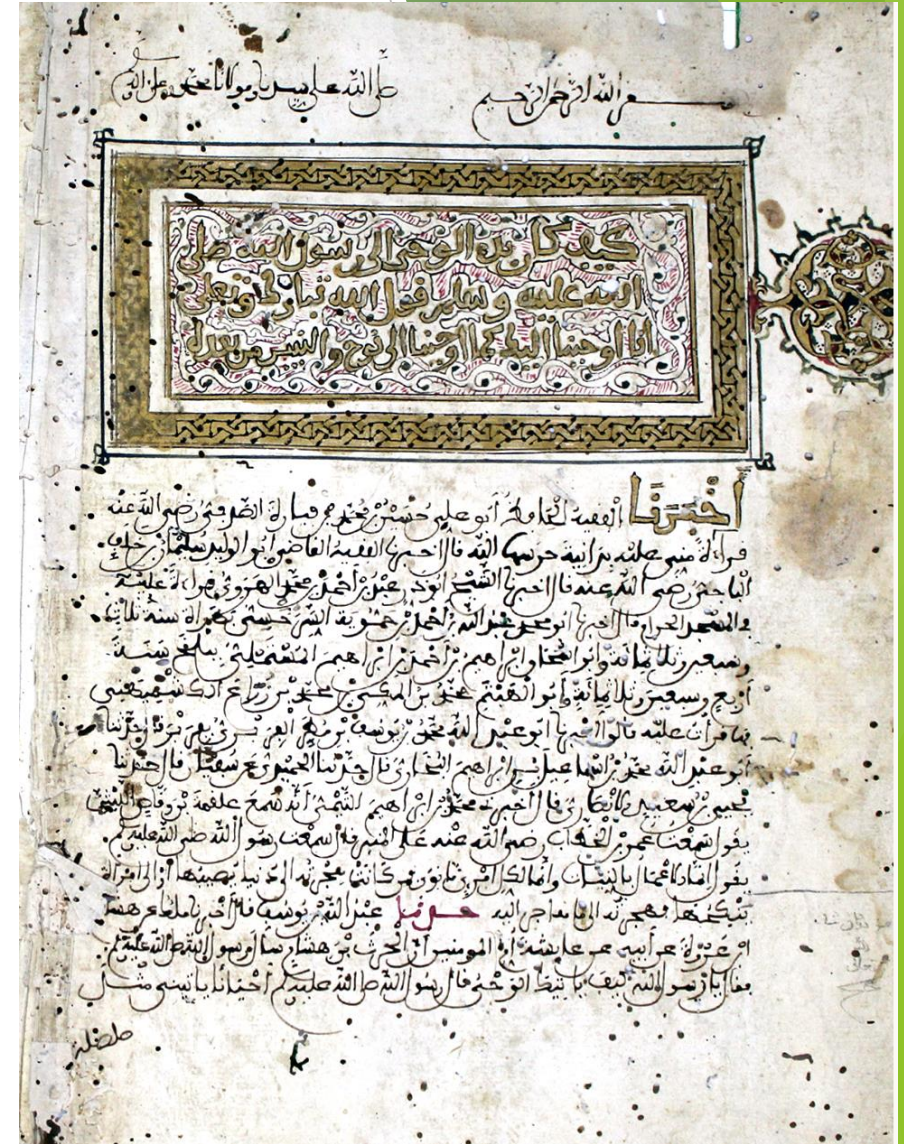 بسم الله الرحمن الرحيم
صلى الله على سيدنا ومولانا محمد وعلى آله
كيف كان بدء الوحي إلى رسول الله صلى
الله عليه وسلم وقول الله تبارك وتعلى
انا اوحينا اليك كما اوحينا الى نوح والنبيين من بعده
أَخْبَرَنَا الفقيه الحافظ أبو علي حُسَيْن بن محمد بن الصدفي رضي الله عنه
قراءة مني عليه الله قال اخبرنا الفقيه القاضي ابو الوليد سليمن بن خلف
الباجي رضي الله عنه قال اخبرنا الشيخ ابو ذر عبد بن أحمد بن محمد الهروي قراءة عليه
في المسجد الحرام قال اخبرنا ابو محمد عبد الله بن أحمد بن حمّوية السَّرْخَسِيّ بهراة سنة ثلاث
وسبعين وثلاثمائة وابو اسحاق ابراهيم بن أحمد بن ابراهيم المُسْتَمْلِيُّ ببلخ سَنَةَ
أربع وسبعين وثلاثمائة وأبو الهَيْثَم محمد بن المكي بن محمد بن زُرَّاع الكشميهني
قرأت عليه قالوا اخبرنا ابو عبد الله محمد بن يوسف بن مطر الفربري بفربر
أبو عبد الله محمد بن اسماعيل بن ابراهيم البخاري قال حدثنا الحميدي عن سفين قال حدثنا
يحيى بن سعيد الانصاري قال اخبرني محمد بن ابراهيم التيمي أنه سمع علقمة بن وقاص الليثي
يقول سمعت عمر بن الخطاب رضي الله عنه على المنبر قال سمعت رسول الله صلى الله عليه وسلم
يقول إنما الاعمال بالنيات وإنما لكل امرئ ما نوى فمن كانت هجرته إلى دنيا يصيبها أو إلى امرأة
ينكحها فهجرته إلى ما هاجر إليه حدثنا عبد الله بن يوسف قال أخبرنا مالك عن هشام
ابن عروة عن أبيه عن عايشة أم المومنين أن الحرث بن هشام سأل رسول الله صلى الله عليه وسلم
فقال يا رسول الله كيف ياتيك الوحي فقال رسول الله صلى الله عليه وسلم أحيانا ياتيني مثل
صلصلة